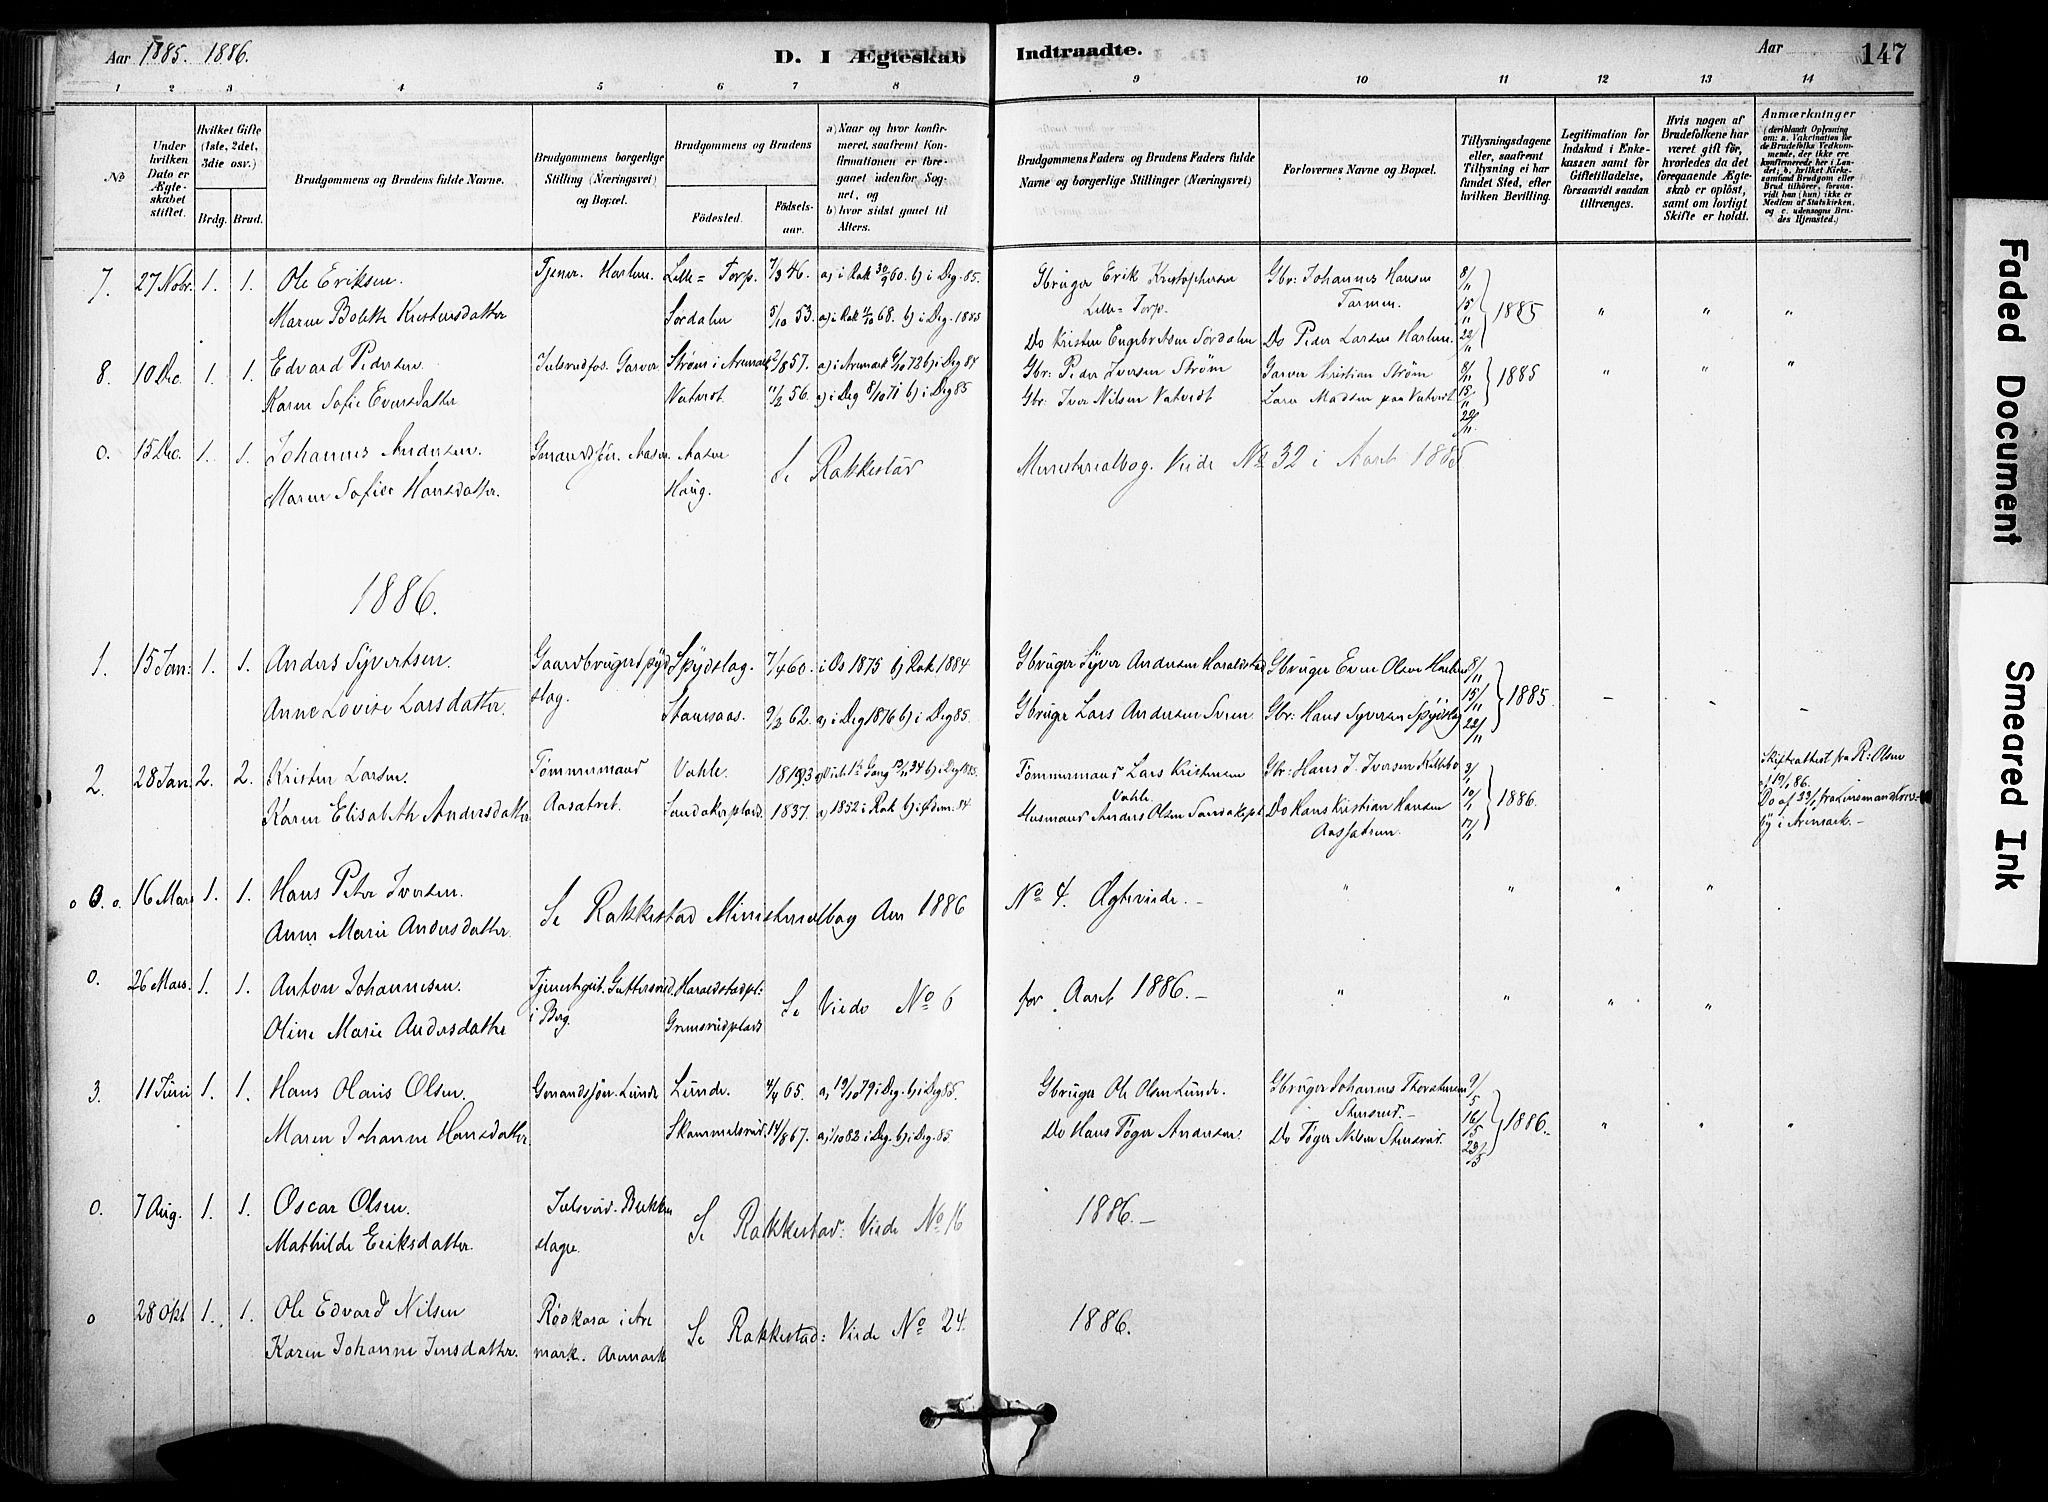 Aar 1885. 1886.
D. I Ægteskab Indtraadte.
Aar
147
1 2 3 4 5 6 7 8 9 10 11 12 13 14
No
Under hvilken Dato er Ægteskabet stiftet.
Hvilket Gifte (1ste, 2det, 3die osv.)
Brdg. Brud.
Brudgommens og Brudens fulde Navne.
Brudgommens borgerlige Stilling (Næringsvei) og Bopæl.
Brudgommens og Brudens
Fødested.
Fødsels-aar.
a) Naar og hvor konfirmeret, saafremt Konfirmationen er foregaaet udenfor Sognet, og
b) hvor sidst gaaet til Alters.
Brudgommens Faders og Brudens Faders fulde Navne og borgerlige Stillinger (Næringsvei)
Forlovernes Navne og Bopæl.
Tillysningsdagene eller, saafremt Tillysning ei har fundet Sted, efter hvilken Bevilling.
Legitimation for Indskud i Enkekassen samt for Giftetilladelse, forsaavidt saadan tiltrænges.
Hvis nogen af Brudefolkene har været gift før, hvorledes da det foregaaende Ægteskab er opløst, samt om lovligt Skifte er holdt.
Anmærkninger
(deriblandt Oplysning om: a. Vakcination for de Brudefolks Vedkommende, der ikke ere konfirmerede her i Landet; b. hvilket Kirkesamfund Brudgom eller Brud tilhører, forsavidt han (hun) ikke er Medlem af Statskirken, og c. udensogns Brudes Hjemsted.)
7. 27 Nobr. 1. 1. Ole Eriksen. Tjener. Harlem. Lille= Torp. 7/3 46. a) i Rak 30/9 60. b) i Deg. 85. Gbruger Erik Kristophersen Lille= Torp. Gbr: Johannes Hansen Tarmen. 8/11 15/11 22/11 } 1885 " " "
Maren Bolette Kristensdatter Sørdalen 5/10 53. a) i Rak 11/10 68. b) i Deg. 1885 Do Kristen Engebretsen Sørdalen Do Peder Larsen Harlem.
8. 10 Dec. 1. 1. Edvard Pedersen. Julsrudfos. Garver. Strøm i Aremark 2/8 57. a) i Aremark 6/10 72 b) i Deg 84 Gbr: Peder Iversen Strøm Garver Kristian Strøm 8/11 15/11 22/11 } 1885 " " "
Karen Sofie Eversdatter Vatvedt 11/2 56. a) i Deg 8/10 71 b) i Deg 85 Gbr: Iver Nilsen Vatvedt Lars Madsen paa Vatvedt
0. 15 Dec. 1. 1. Johannes Andersen. Gmandssøn. Aasen. Aasen Se Rakkestad Ministerialbog. Viede No 32 i Aaret 1885
Maren Sofie Hansdatter. Haug.
1886.
1. 15 Jan: 1. 1. Anders Syvertsen. Gaardbruger Spyd Spydslag. 7/4 60. i Os 1875 b) Rak 1884 Gbruger Syver Andersen Haraldstad Gbruger Even Olsen Harlem 8/11 15/11 22/11 } 1885 – – –
Anne Lovise Larsdatter. slag. Stamsaas. 9/2 62. a) i Deg 1876 b) i Deg 85. Gbruger Lars Andersen Svren Gbr: Hans Syversen Spydslag
2. 28 Jan 2. 2. Kristen Larsen. Tømmermand Vahle. 1819 b) i Deg 1885. Tømmermand Lars Kristensen Vahle Gbr: Hans J. Iversen Kallebo 3/1 10/1 17/1 } 1886. Skifteattest fra R. Olsen af 19/1 86.
Karen Elisabeth Andersdatter. Aasatret. Sandakerplads. 1837. a) 1852 i Rak b) i Ødem. 84 Husmand Anders Olsen Sandakepl. Do Hans Kristian Hansen Aassatren. Do af 23/1 fra Lensmand by i Aremark. –
0. 16 Mars 1. 1. Hans Peter Iversen. Se Rakkestad Ministerialbog Aar 1886 No 4. Ægteviede. – " " " "
Anne Marie Andersdatter.
0. 26 Mars. 1. 1. Anton Johannesen. Tjenestegut. Guttersrud. Haraldstadpl: Se Viede No 6 for Aaret 1886. – " " " "
Oline Marie Andersdatter i Berg. Grimsrudplads
3. 11 Juni 1. 1. Hans Olaus Olsen. Gmandssøn. Lunde Lunde. 4/4 65. a, 19/10 79 i Deg. b) i Deg 85. Gbruger Ole Olsen Lunde. Gbruger Johannes Thorstensen Stensrud. – 9/5 16/5 23/5 } 1886. " " "
Maren Johanne Hansdatter. Skammelsrud. 14/8 67. a, 1/10 82 i Deg. b) i Deg. 85. Do Hans Tøger Andersen. Do Tøger Nilsen Stensrud.
0. 7 Aug. 1. 1. Oscar Olsen. Julsrud. Bukken Se Rakkestad: Viede No 16 1886. –
Mathilde Eriksdatter. slagre.
0 28 Okt 1. 1. Ole Edvard Nilsen Rødkasa i Are Se Rakkestad: Viede No 24. 1886.
Karen Johanne Jensdatter. mark. Aremark
Faded Document
Smeared Ink